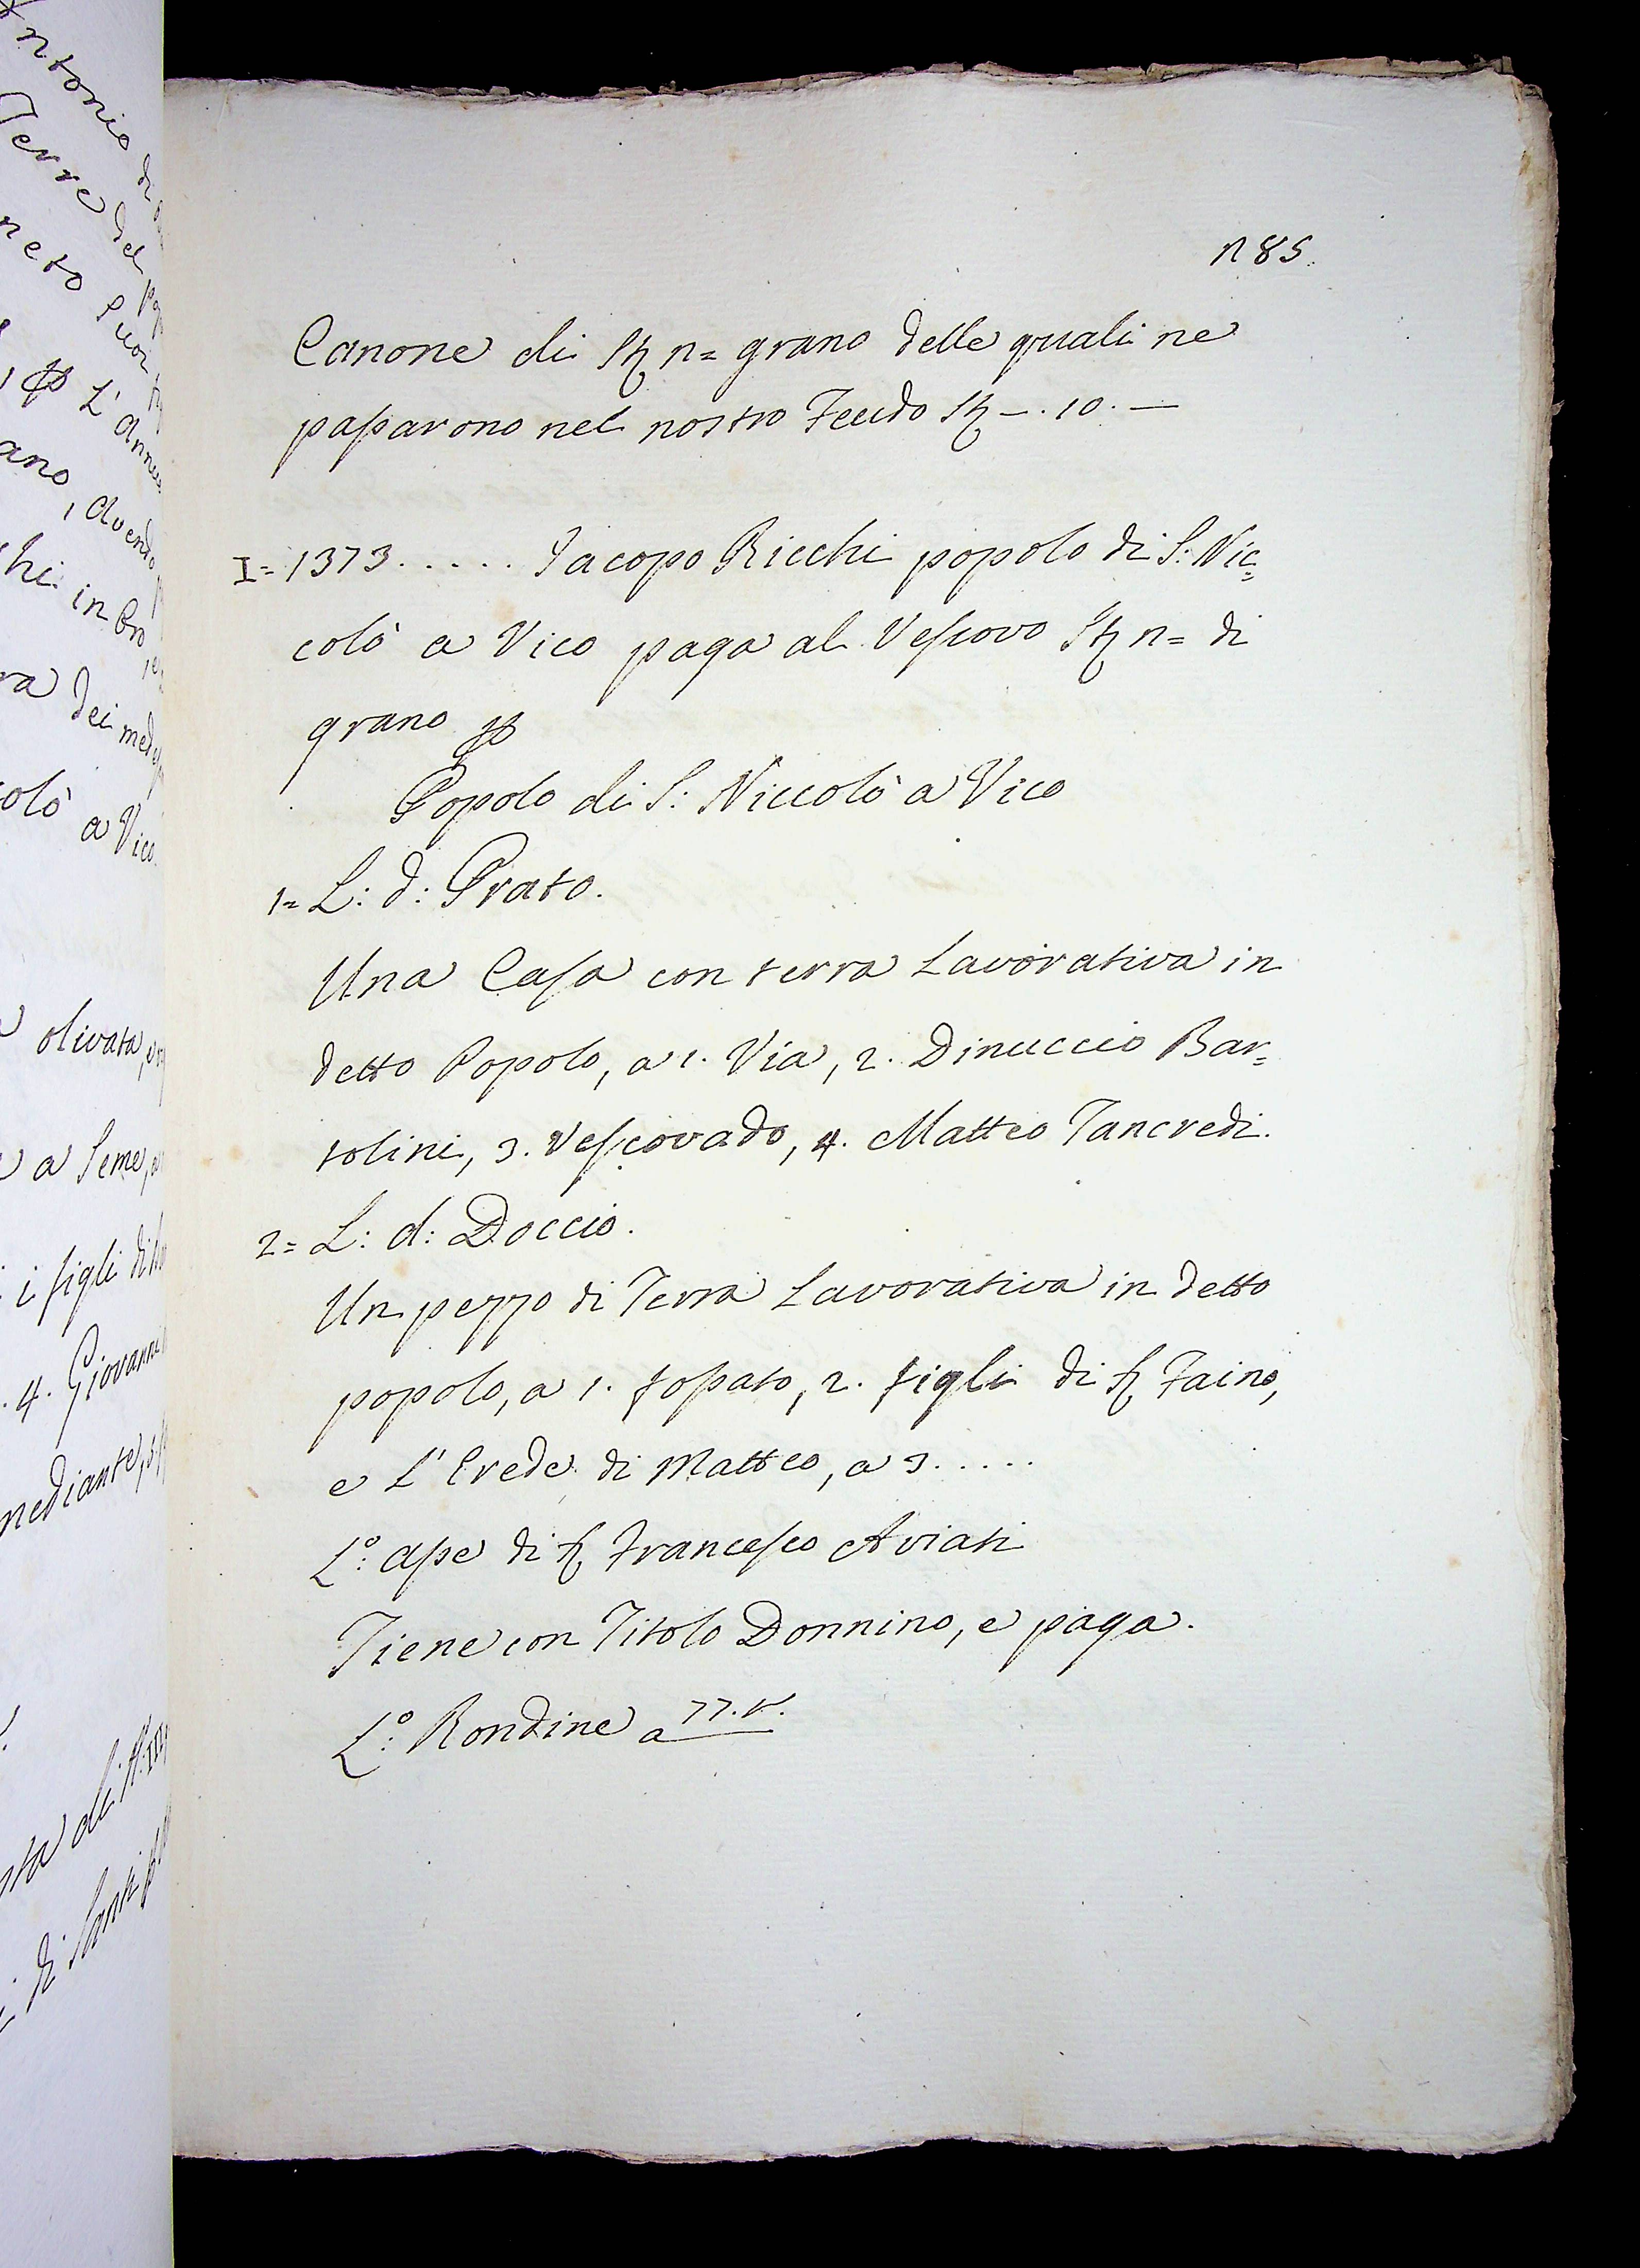 ntonio di
Terre del
neto
L' annu
ano, avendo
hi in
ra dei mede
olò a Vico
olivata,
a Seme,
i figli di
4. Giovanni
mediante, 3.
185.
Canone di St n= grano delle quali ne
passarono nel nostro Feudo St -. 10. -
I= 1373..... Jacopo Ricchi popolo di S: Nic=
colò a Vico paga al Vescovo St n= di
grano p
Popolo di S: Niccolò a Vico
1= L: d: Prato.
Una Casa con terra Lavorativa in
detto Popolo, a 1. Via, 2. Dinuccio Bar=
tolini, 3. Vescovado, 4. Matteo Tancredi.
2= L: d: Doccio.
Un pezzo di Terra Lavorativa in detto
popolo, a 1. fossato, 2. figli di S. Faino,
e L' Erede di Matteo, a 3.....
L:º Ape di S. Francesco Aviati
Tiene con Titolo Donnino, e paga.
L:º Rondine a 77.